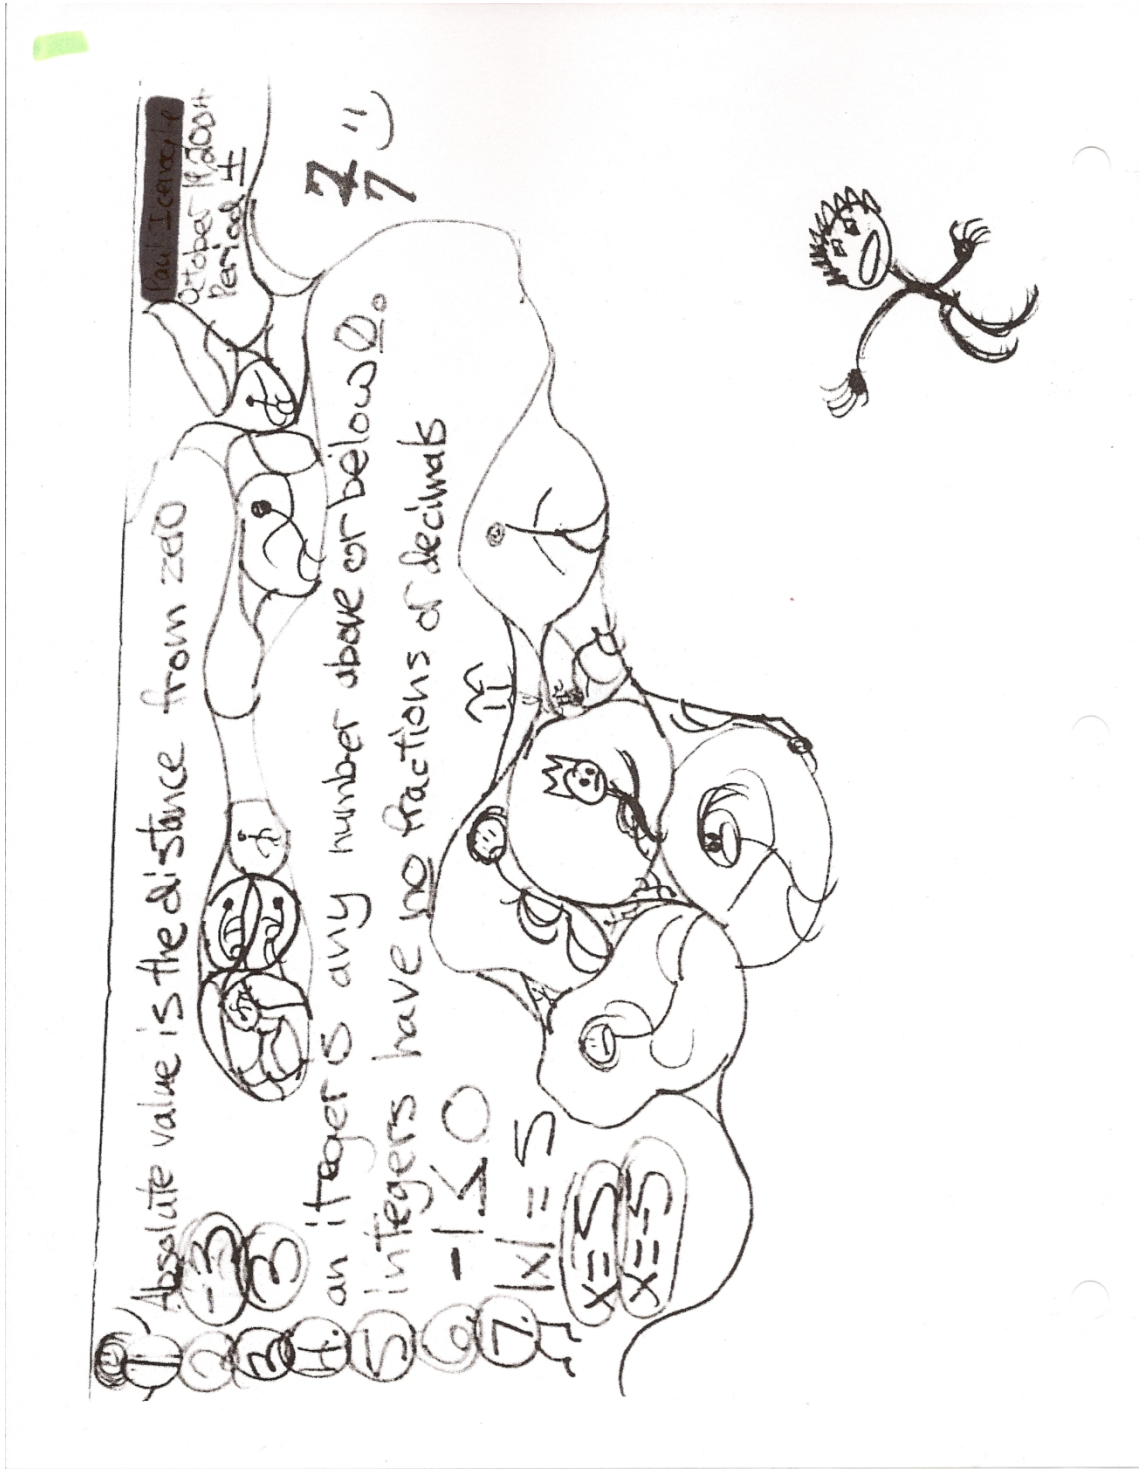 October 19, 2004
Period 4
7
7
1 Absolute value is the distance from zero
2 -3
3 3
4. an integer is any number above or below 0.
5 integers have no fractions or decimals
6. -1 ≤ 0
7. |x| = 5
x=5
x=-5